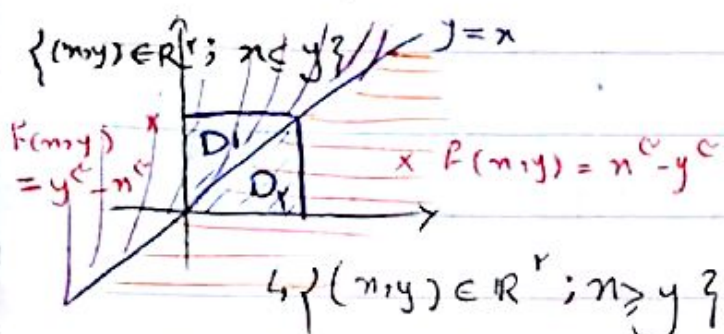 {(x,y) ∈ ℝ²; x ≤ y}
y = x
F(x,y)
= y² - x²
D₁
D₂
F(x,y) = x² - y²
↳ {(x,y) ∈ ℝ²; x ≥ y}